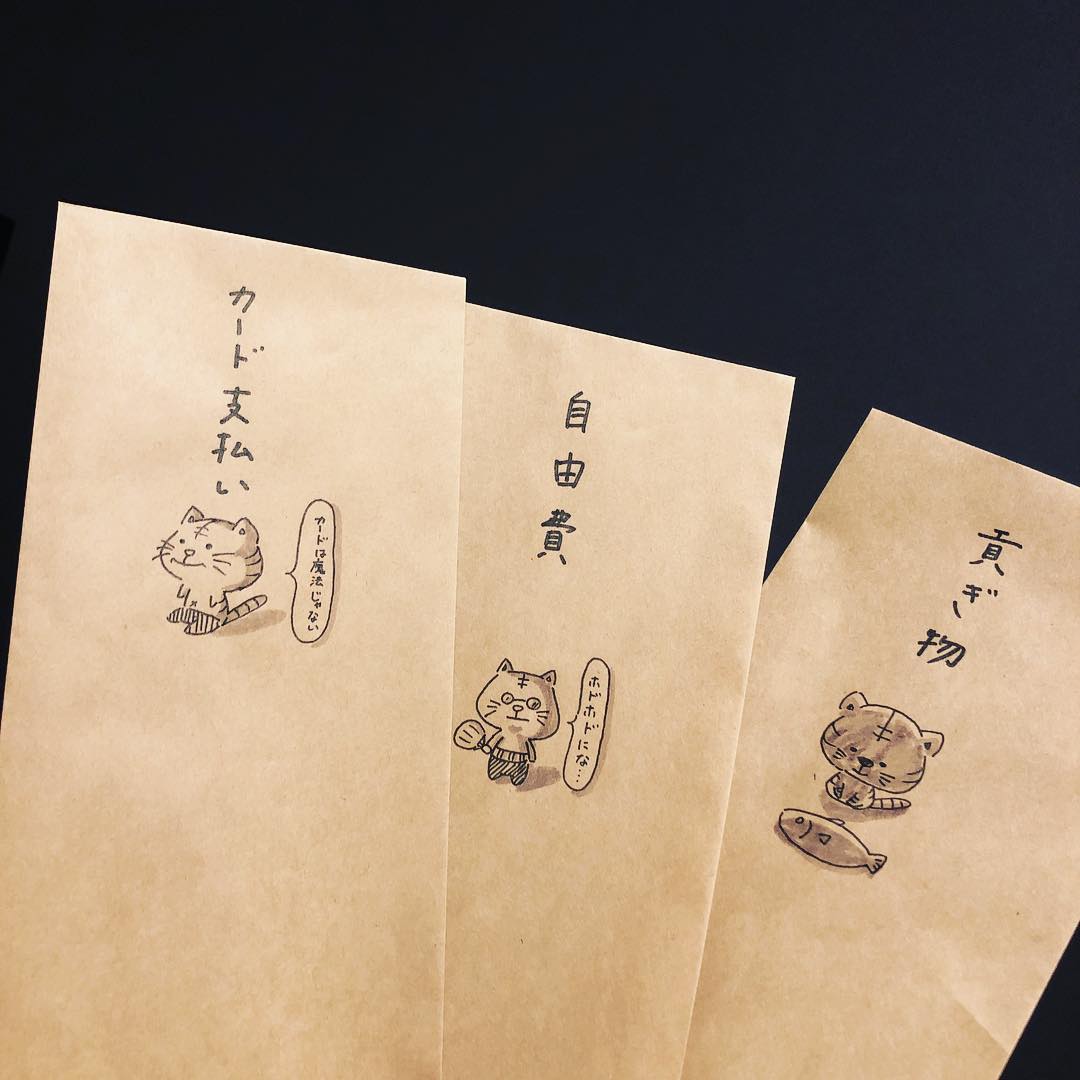 カード支払い
カードは魔法じゃない
自由費
ホドホドにな…
貢ぎ物